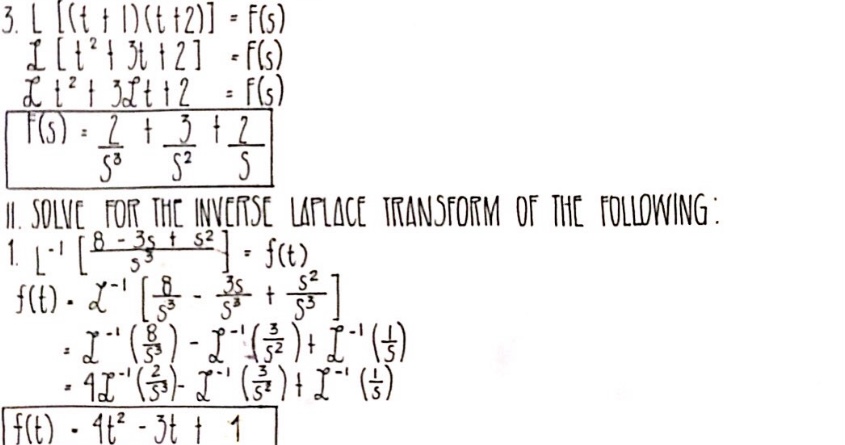 3. L [(t + 1)(t+2)] = F(s)
ℒ [t² + 3t + 2] = F(s)
ℒ t² + 3ℒt + 2 = F(s)
F(s) = 2/s³ + 3/s² + 2/s
II. SOLVE FOR THE INVERSE LAPLACE TRANSFORM OF THE FOLLOWING:
1. L⁻¹ [(8 - 3s + s²)/s³] = f(t)
f(t) = ℒ⁻¹ [8/s³ - 3s/s³ + s²/s³]
= ℒ⁻¹ (8/s³) - ℒ⁻¹ (3/s²) + ℒ⁻¹ (1/s)
= 4ℒ⁻¹ (2/s³) - ℒ⁻¹ (3/s²) + ℒ⁻¹ (1/s)
f(t) = 4t² - 3t + 1